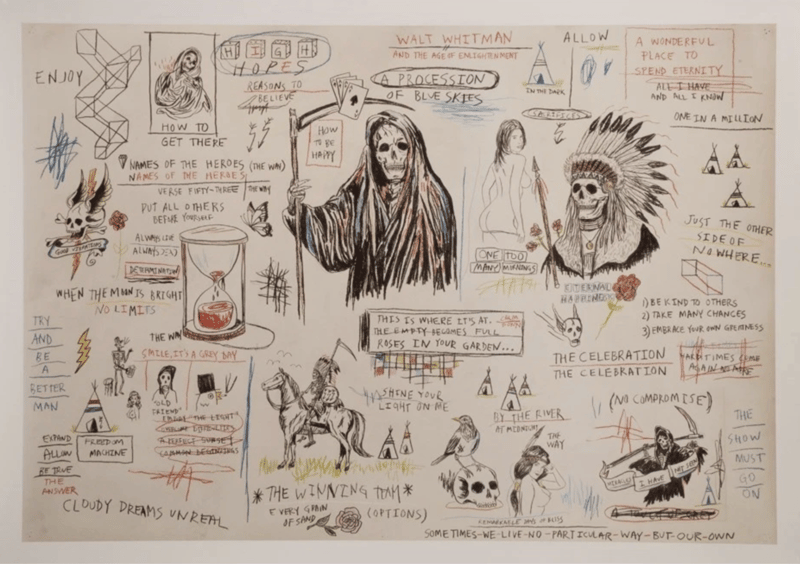 ENJOY
HOW TO
GET THERE
HIGH
HOPES
REASONS TO
BELIEVE
WALT WHITMAN
AND THE AGE OF ENLIGHTENMENT
A PROCESSION
OF BLUE SKIES
IN THE DARK
ALLOW
A WONDERFUL
PLACE TO
SPEND ETERNITY
ALL I HAVE
AND ALL I KNOW
ONE IN A MILLION
HOW
TO BE
HAPPY
SACRIFICES
NAMES OF THE HEROES (THE WAY)
NAMES OF THE HEROES
VERSE FIFTY-THREE THE WAY
PUT ALL OTHERS
BEFORE YOURSELF
ALWAYS
ALWAYS
DETERMINATION
GOOD
WHEN THE MOON IS BRIGHT
NO LIMITS
THE WAY
SMILE, IT'S A GREY DAY
ONE TOO
MANY MORNINGS
ETERNAL
HAPPINESS
JUST THE OTHER
SIDE OF
NOWHERE...
1) BE KIND TO OTHERS
2) TAKE MANY CHANCES
3) EMBRACE YOUR OWN GREATNESS
THIS IS WHERE IT'S AT.
THE EMPTY BECOMES FULL
ROSES IN YOUR GARDEN...
THE CELEBRATION
THE CELEBRATION
AGAIN NO MORE
TRY
AND
BE
A
BETTER
MAN
OLD
FRIEND
EXPAND
ALLOW
BE TRUE
THE
ANSWER
FREEDOM
MACHINE
CLOUDY DREAMS UNREAL
SHINE YOUR
LIGHT ON ME
*THE WINNING TEAM*
EVERY GRAIN
OF SAND
(OPTIONS)
BY THE RIVER
OF MIDNIGHT
THE
WAY
(NO COMPROMISE)
I HAVE
THE
SHOW
MUST
GO
ON
SOMETIMES-WE-LIVE-NO-PARTICULAR-WAY-BUT-OUR-OWN